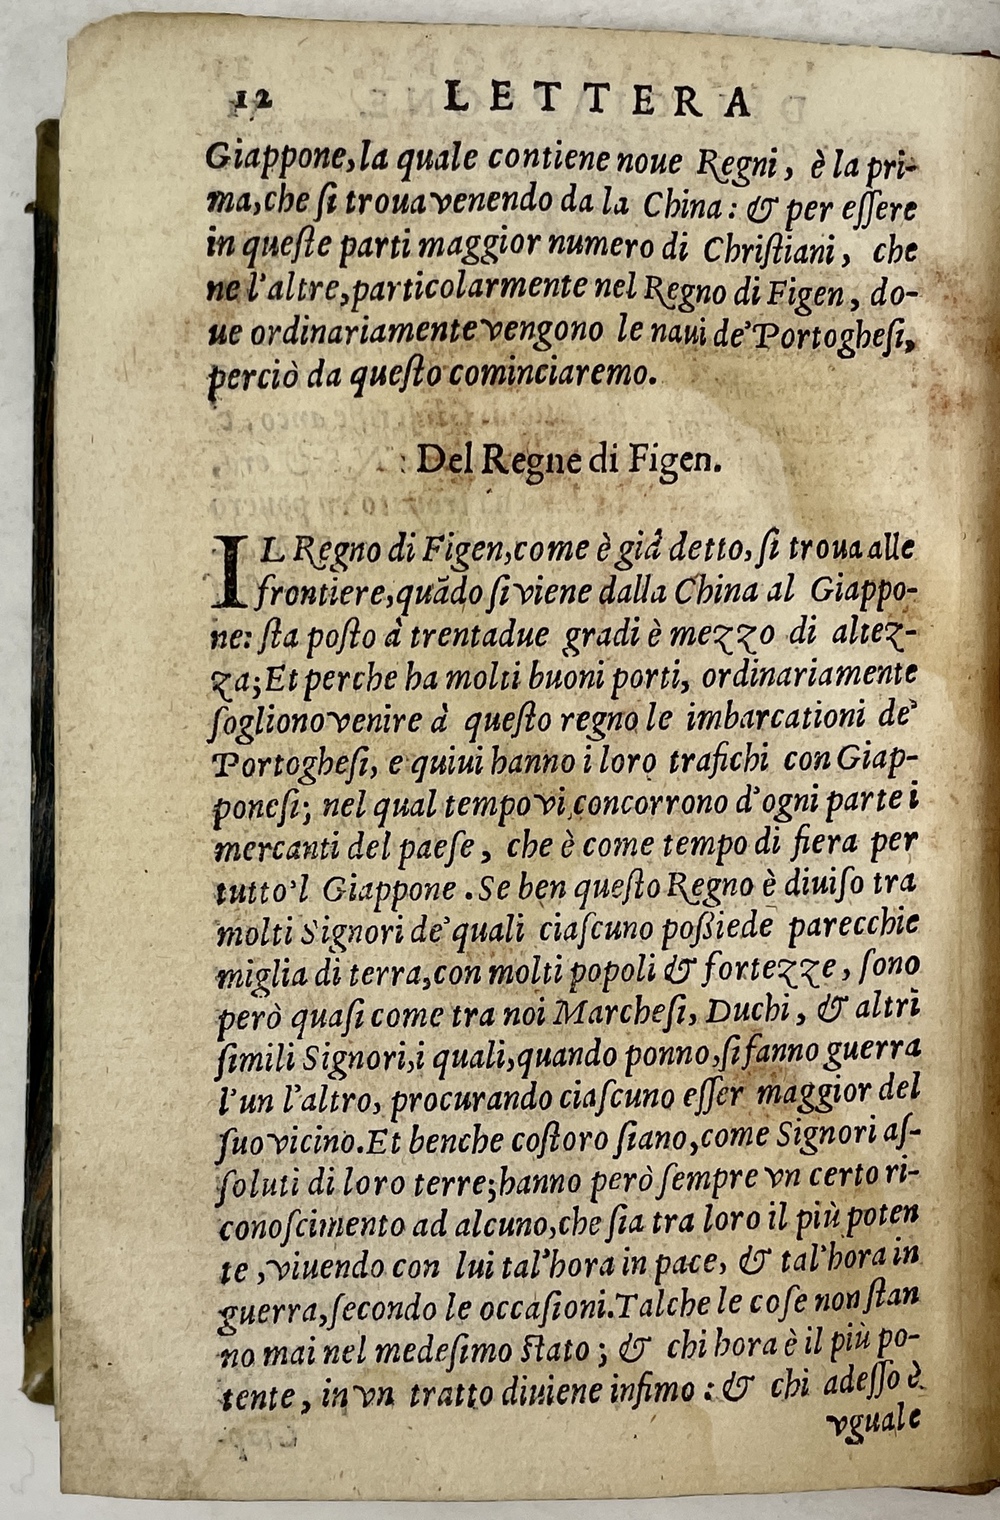 12 LETTERA
Giappone, la quale contiene noue Regni, è la pri-
ma, che ſi troua venendo da la China: & per eſſere
in queſte parti maggior numero di Chriſtiani, che
ne l'altre, particolarmente nel Regno di Figen, do-
ue ordinariamente vengono le naui de' Portogheſi,
perciò da queſto cominciaremo.
Del Regne di Figen.
IL Regno di Figen, come è già detto, ſi troua alle
frontiere, quãdo ſi viene dalla China al Giappo-
ne: ſta poſto à trentadue gradi è mezzo di altez-
za; Et perche ha molti buoni porti, ordinariamente
ſogliono venire à queſto regno le imbarcationi de'
Portogheſi, e quiui hanno i loro trafichi con Giap-
poneſi; nel qual tempo vi concorrono d'ogni parte i
mercanti del paeſe, che è come tempo di fiera per
tutto'l Giappone. Se ben queſto Regno è diuiſo tra
molti Signori de' quali ciaſcuno poßiede parecchie
miglia di terra, con molti popoli & fortezze, ſono
però quaſi come tra noi Marcheſi, Duchi, & altri
ſimili Signori, i quali, quando ponno, ſi fanno guerra
l'un l'altro, procurando ciaſcuno eſſer maggior del
ſuo vicino. Et benche coſtoro ſiano, come Signori aſ-
ſoluti di loro terre; hanno però ſempre vn certo ri-
conoſcimento ad alcuno, che ſia tra loro il più poten
te, viuendo con lui tal'hora in pace, & tal'hora in
guerra, ſecondo le occaſioni. Talche le coſe non ſtan
no mai nel medeſimo ſtato; & chi hora è il più po-
tente, in vn tratto diuiene infimo: & chi adeſſo è
vguale